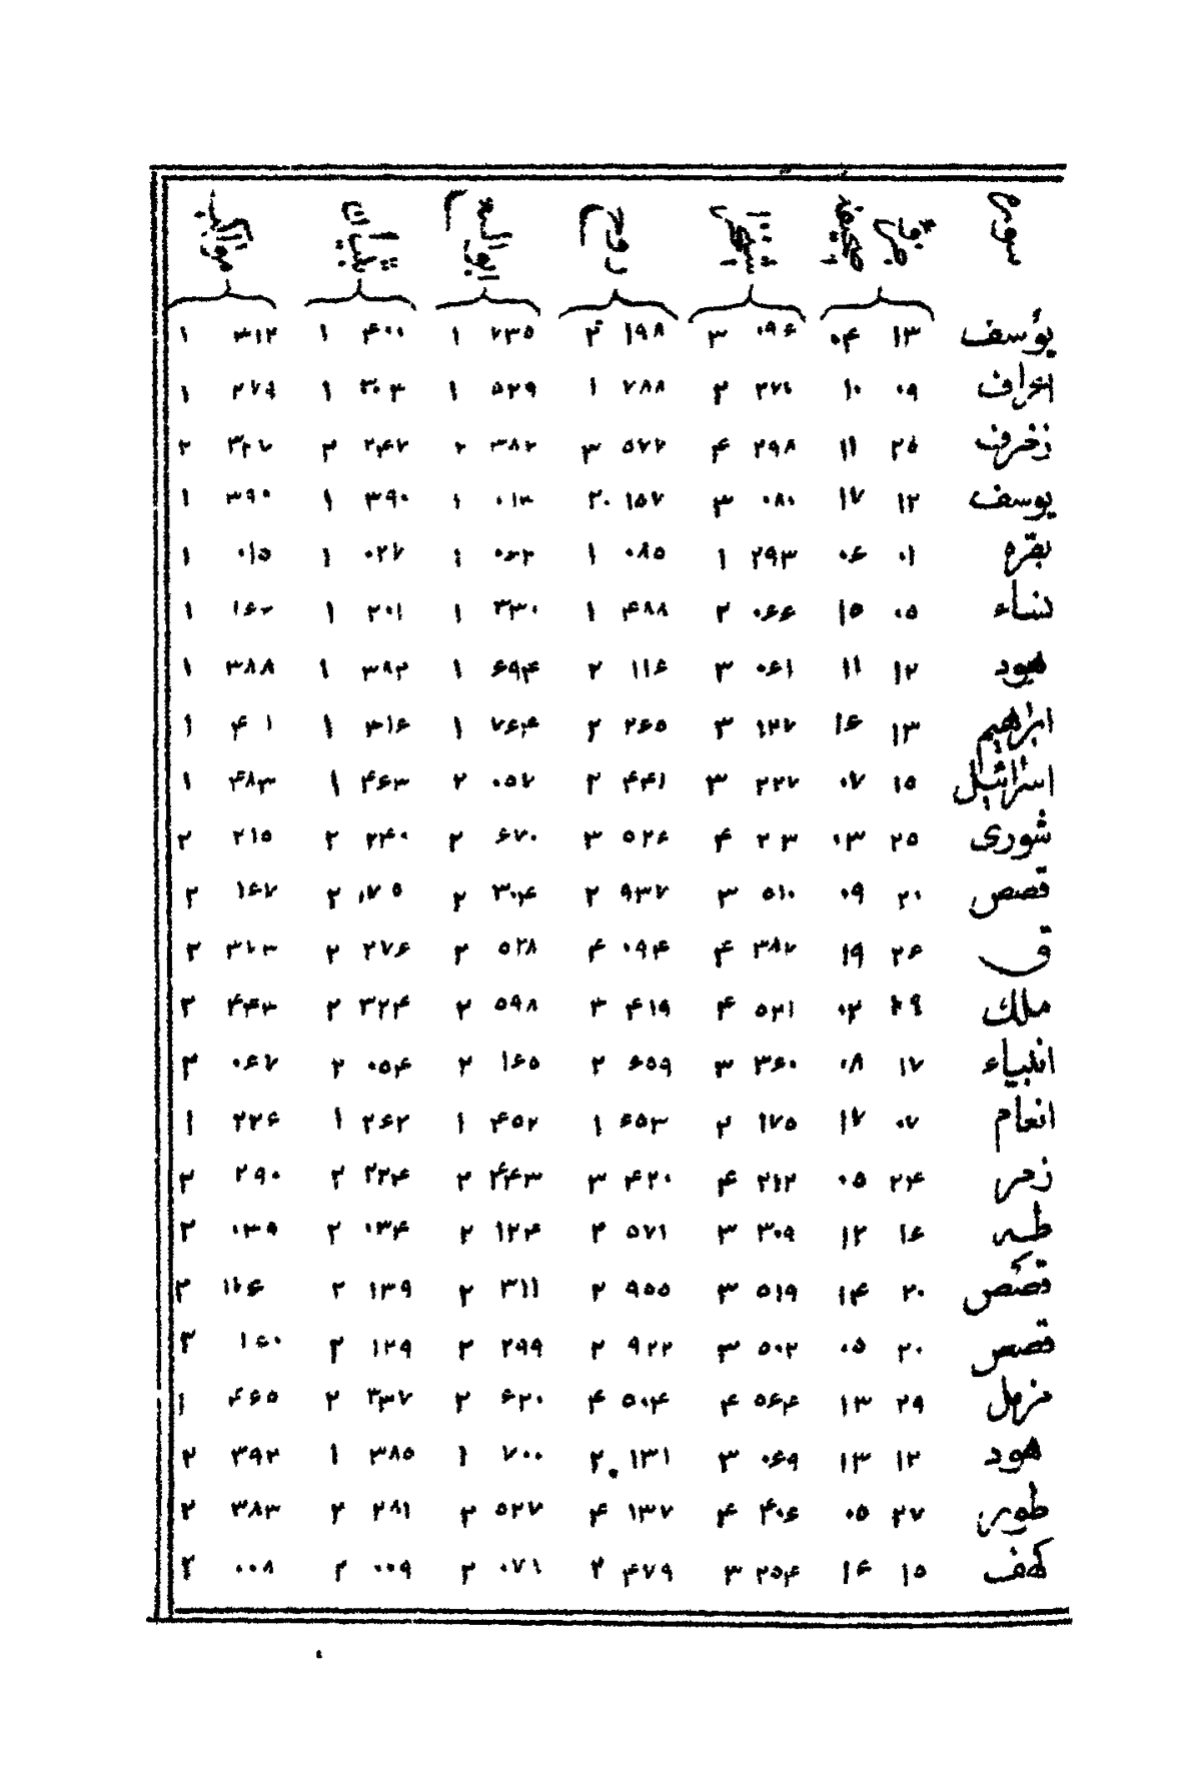 سوره جزو صحیفه روح ابوالفتوح
یوسف ۱۳ ۰۴ ۰۹۶ ۳ ۱۹۸ ۲ ۷۳۵ ۱ ۴۰۰ ۱ ۳۱۲ ۱
اعراف ۰۹ ۱۰ ۲۷۶ ۲ ۷۸۸ ۱ ۵۲۹ ۱ ۳۰۳ ۱ ۲۷۹ ۱
زخرف ۲۵ ۱۱ ۲۹۸ ۴ ۵۷۲ ۳ ۳۸۲ ۲ ۲۴۷ ۲ ۳۲۷ ۲
یوسف ۱۲ ۱۷ ۰۸۰ ۳ ۱۵۷ ۲ ۰۱۳ ۱ ۳۹۰ ۱ ۳۹۰ ۱
بقره ۰۱ ۰۶ ۲۹۳ ۱ ۰۸۵ ۱ ۰۶۲ ۱ ۰۲۷ ۱ ۰۱۵ ۱
نساء ۰۵ ۱۵ ۰۶۶ ۲ ۴۸۸ ۱ ۳۳۰ ۱ ۲۰۱ ۱ ۱۶۲ ۱
هود ۱۲ ۱۱ ۰۶۱ ۳ ۱۱۶ ۲ ۶۹۴ ۱ ۳۸۲ ۱ ۳۸۸ ۱
ابراهیم ۱۳ ۱۶ ۱۲۷ ۳ ۲۶۵ ۲ ۷۶۴ ۱ ۳۱۶ ۱ ۴۱ ۱
اسرائیل ۱۵ ۰۷ ۲۲۷ ۳ ۴۴۱ ۲ ۰۵۷ ۲ ۴۶۳ ۱ ۴۸۳ ۱
شوری ۲۵ ۰۳ ۲۳ ۴ ۵۲۶ ۳ ۶۷۰ ۲ ۲۴۰ ۲ ۲۱۵ ۲
قصص ۲۰ ۰۹ ۵۱۰ ۳ ۹۳۷ ۲ ۳۰۴ ۲ ۱۷۵ ۲ ۱۶۷ ۲
ق ۲۶ ۱۹ ۳۸۷ ۴ ۰۹۴ ۴ ۵۲۸ ۲ ۲۷۶ ۲ ۳۶۳ ۲
ملک ۲۹ ۰۲ ۵۲۱ ۴ ۴۱۹ ۳ ۵۹۸ ۲ ۳۲۴ ۲ ۴۴۳ ۲
انبیاء ۱۷ ۰۸ ۳۶۰ ۳ ۶۵۹ ۲ ۱۶۵ ۲ ۰۵۴ ۲ ۰۶۷ ۲
انعام ۰۷ ۱۷ ۱۷۵ ۲ ۶۵۳ ۱ ۴۵۲ ۱ ۲۶۲ ۱ ۲۲۶ ۱
زمر ۲۴ ۰۵ ۲۱۲ ۴ ۴۲۰ ۳ ۴۴۳ ۲ ۲۲۴ ۲ ۲۹۰ ۲
طه ۱۶ ۱۲ ۳۰۹ ۳ ۵۷۱ ۲ ۱۲۴ ۲ ۰۳۴ ۲ ۰۳۹ ۲
قصص ۲۰ ۱۴ ۵۱۹ ۳ ۹۵۵ ۲ ۳۱۱ ۲ ۱۳۹ ۲ ۱۷۶ ۲
قصص ۲۰ ۰۵ ۵۰۲ ۳ ۹۲۲ ۲ ۲۹۹ ۲ ۱۲۹ ۲ ۱۶۰ ۲
مزمل ۲۹ ۱۳ ۵۶۴ ۴ ۵۰۴ ۴ ۶۲۰ ۲ ۳۳۷ ۲ ۴۶۵ ۱
هود ۱۲ ۱۳ ۰۶۹ ۳ ۱۳۱ ۲ ۷۰۰ ۱ ۳۸۵ ۱ ۳۹۲ ۲
طور ۲۷ ۰۵ ۴۰۶ ۴ ۱۳۷ ۴ ۵۲۷ ۲ ۲۸۱ ۲ ۳۸۳ ۲
کهف ۱۵ ۱۶ ۲۵۴ ۳ ۴۷۹ ۲ ۰۷۱ ۲ ۰۰۹ ۲ ۰۰۸ ۲